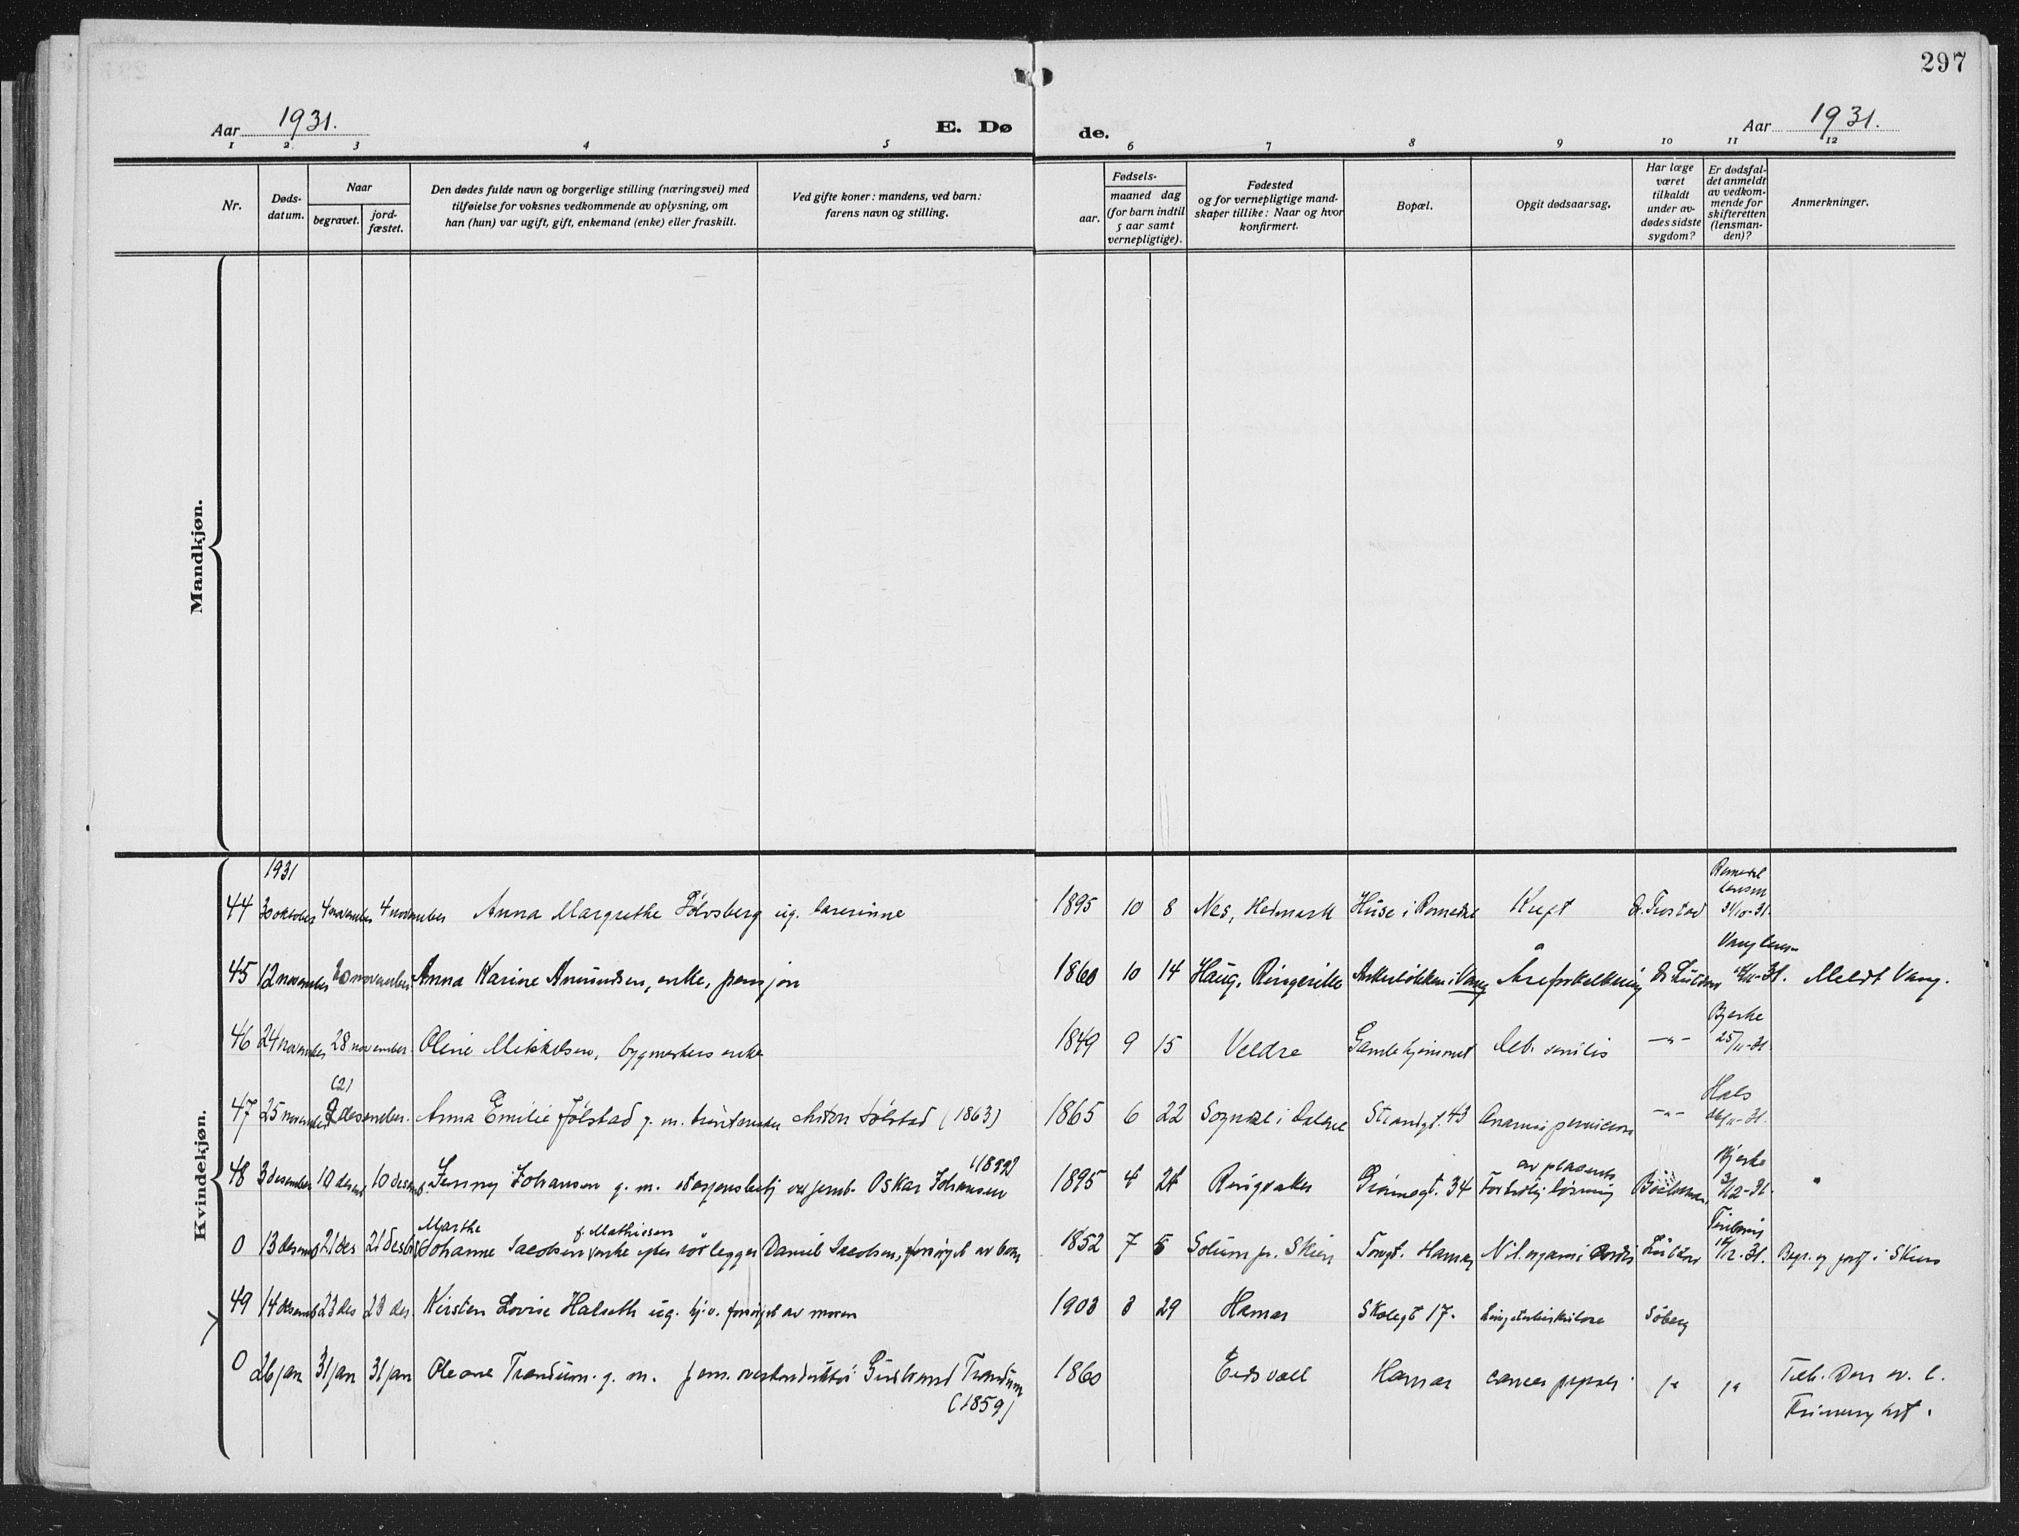 297
Aar 1931. E. Dø de. Aar 1931.
1 2 3 4 5 6 7 8 9 10 11 12
Nr.
Døds-
datum.
Naar
begravet.
jord-
fæstet.
Den dødes fulde navn og borgerlige stilling (næringsvei) med
tilføielse for voksnes vedkommende av oplysning, om
han (hun) var ugift, gift, enkemand (enke) eller fraskilt.
Ved gifte koner: mandens, ved barn:
farens navn og stilling.
Fødsels-
aar.
maaned dag
(for barn indtil
5 aar samt
vernepligtige).
Fødested
og for vernepligtige mand-
skaper tillike: Naar og hvor
konfirmert.
Bopæl.
Opgit dødsaarsag.
Har læge
været
tilkaldt
under av-
dødes sidste
sygdom?
Er dødsfal-
det anmeldt
av vedkom-
mende for
skifteretten
(lensman-
den)?
Anmerkninger.
Mandkjøn.
Kvindekjøn.
1931
44 30 oktober 4 november 4 november Anna Margrethe ug. lærerinne 1895 10 8 Nes, Hedmark Huse i Romedal Kreft Dr. Frostad Romedal lensm 31/10-31.
45 12 november 20 november Anna Karine Amundsen, enke, pensjon 1860 10 14 Haug, Ringerike i Vang Åreforkalkning Dr. Vang lensm -31. Meldt Vang.
46 24 november 28 november. Oline Mikkelsen, enke 1849 9 15 Veldre Gamlehjemmet deb. senilis -"- Bjerke 25/11-31.
47 25 november (2) 2 desember. Anna Emilie Jølstad g. m. Anton Jølstad (1863) 1865 6 22 Sogndal i Dalane Strandgt. 43 -"- Hals 26/11-31.
48 3 desember 10 desemb 10 desemb. Jenny Johansen g. m. ved jernb. Oskar Johansen (1892) 1895 4 24 Ringsaker Grønnegt. 34 Fortidlig løsning av placenta Bjerke 3/12-31. "
0 13 desemb 21 des 21 desbr Marthe Johanne Jacobsen f. Mathiesen enke efter rørlegger Daniel Jacobsen, forsørget av barn 1852 7 5 Solum pr. Skien Torvgt. Hamar 12-31. Begr. og jordf i Skien
49 14 desemb 23 des 23 des. Kirsten Lovise Halseth ug. hj.v. forsørget av moren 1903 3 29 Hamar Skolegt 17. Lungetuberkulose Søberg
0 26 jan 31 jan 31 jan Oleane Trandum. g. m. jern. overkonduktør Gudbrand Trandum (1859) 1860 Eidsvoll Hamar cancer ja ja Tilh. Den ev. l. Frimenighet.